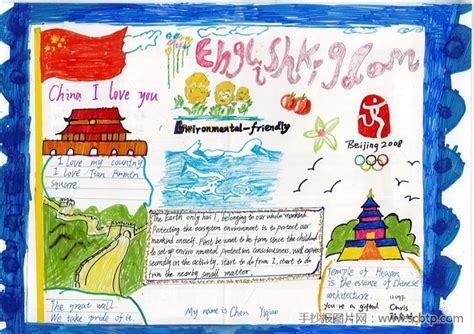 English kingdom
China I love you
Environmental-friendly
Beijing 2008
I love my country
I love Tian Anmen
Square.
The Earth only has 1, belonging to our whole mankind.
Protecting the ecosystem environment is to protect our
mankind oneself. First be want to be form space the children
to set up environmental protection consciousness, will express
scenely on the activity, start to do from I, start to
do from the nearby small matter.
The great wall.
We take pride of it.
My name is Chen
Temple of Heaven
is the essence of Chinese
architecture.
you re a gifted
手抄报图片网：www.scbtp.com